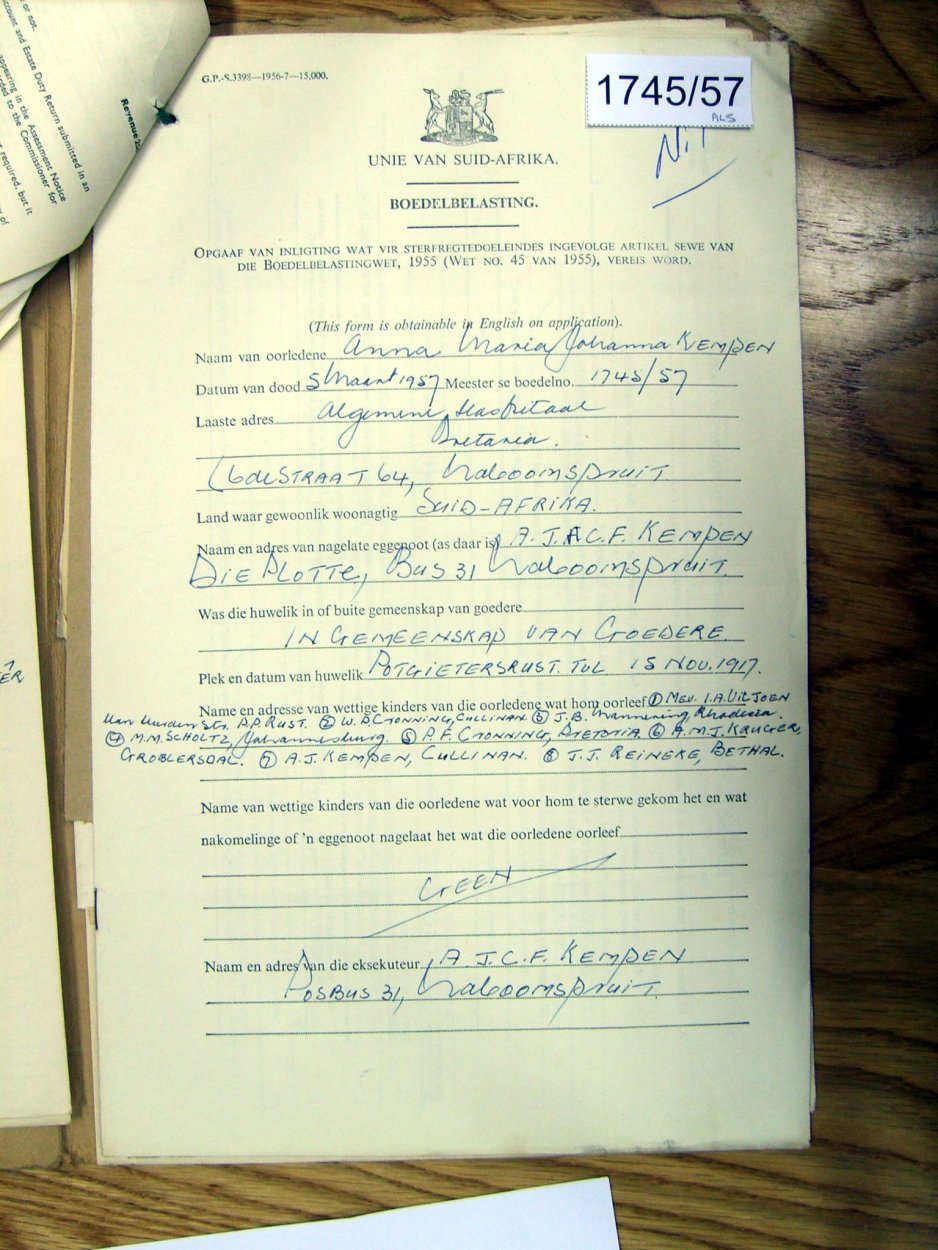 or not.
account and Estate Duty Return submitted in an
appearing in the Assessment Notice
to the Commissioner for
required, but it
of
Revenue
ER
G.P.-S.3398—1956-7—15,000.
1745/57
ALS
UNIE VAN SUID-AFRIKA.
BOEDELBELASTING.
OPGAAF VAN INLIGTING WAT VIR STERFREGTEDOELEINDES INGEVOLGE ARTIKEL SEWE VAN
DIE BOEDELBELASTINGWET, 1955 (WET NO. 45 VAN 1955), VEREIS WORD.
(This form is obtainable in English on application).
Naam van oorledene Anna Maria Johanna KEMPEN
Datum van dood 5 Maart 1957 Meester se boedelno. 1745/57
Laaste adres Algemene Hospitaal
Pretoria.
6de STRAAT 64, Naboomspruit
Land waar gewoonlik woonagtig SUID-AFRIKA.
Naam en adres van nagelate eggenoot (as daar is) A. J.A.C.F. KEMPEN
DIE PLOTTE, BUS 31 Naboomspruit.
Was die huwelik in of buite gemeenskap van goedere
IN GEMEENSKAP VAN GOEDERE.
Plek en datum van huwelik POTGIETERSRUST. TVL 15 NOV. 1917.
Name en adresse van wettige kinders van die oorledene wat hom oorleef ① MEV. I.A. VILJOEN
Str. P.P. RUST. ② W.P. CRONNING, CULLINAN. ③ J.B. Rhodesia.
④ M.M. SCHOLTZ, Johannesburg. ⑤ P.F. CRONNING, PRETORIA ⑥ A.M.J. KRUGER,
GROBLERSDAL. ⑦ A.J. KEMPEN, CULLINAN. ⑧ J.J. REINEKE, BETHAL.
Name van wettige kinders van die oorledene wat voor hom te sterwe gekom het en wat
nakomelinge of 'n eggenoot nagelaat het wat die oorledene oorleef
GEEN
Naam en adres van die eksekuteur A.J.C.F. KEMPEN
POSBUS 31, Naboomspruit.